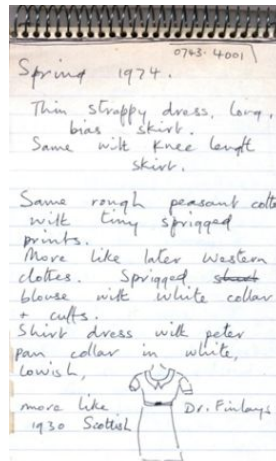 0743.4001
Spring 1974.
Thin strappy dress, long,
bias skirt.
Same with knee length
skirt.
Same rough peasant
with tiny sprigged
prints.
More like later western
clothes. Sprigged
blouse with white collar
+ cuffs.
Shirt dress with peter
pan collar in white,
lowish,
more like Dr. Finlays
1930 Scottish